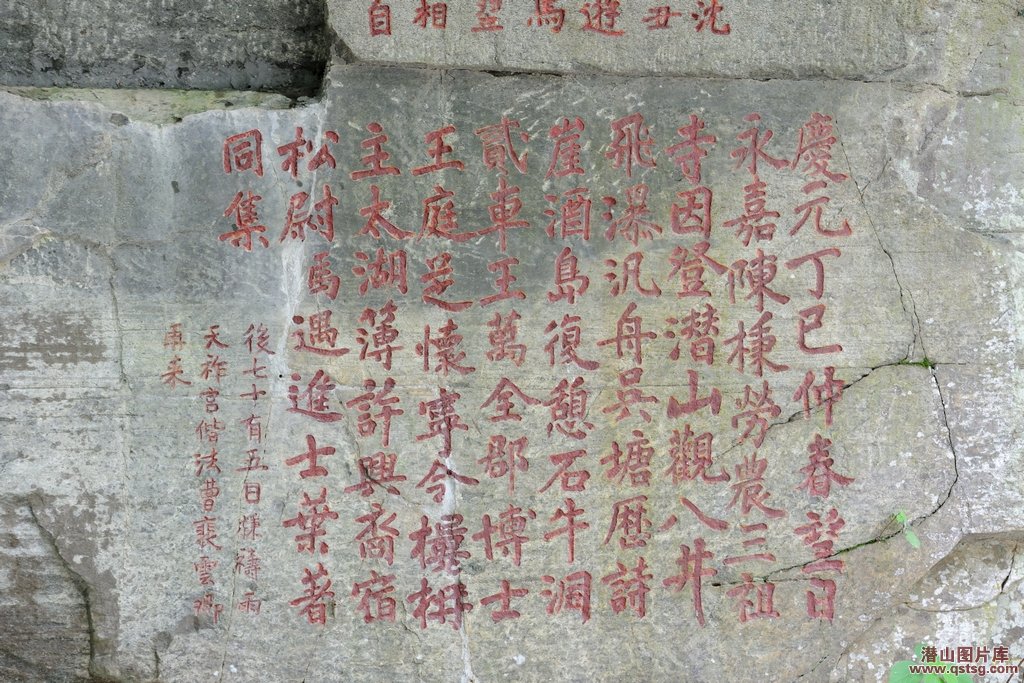 沈丑遊馬相自
慶元丁巳仲春望日
永嘉陳棅勞農三祖
寺因登潛山觀八井
飛瀑汎舟吳塘歷詩
崖酒島復憩石牛洞
貳車王萬全郡博士
王庭懷寧令
主太湖簿許興裔宿
松尉馮遇進士葉著
同集
後七十有五日棅禱雨
天祚宮偕法曹裴雲卿
再来
潜山图片库
www.qstsg.com